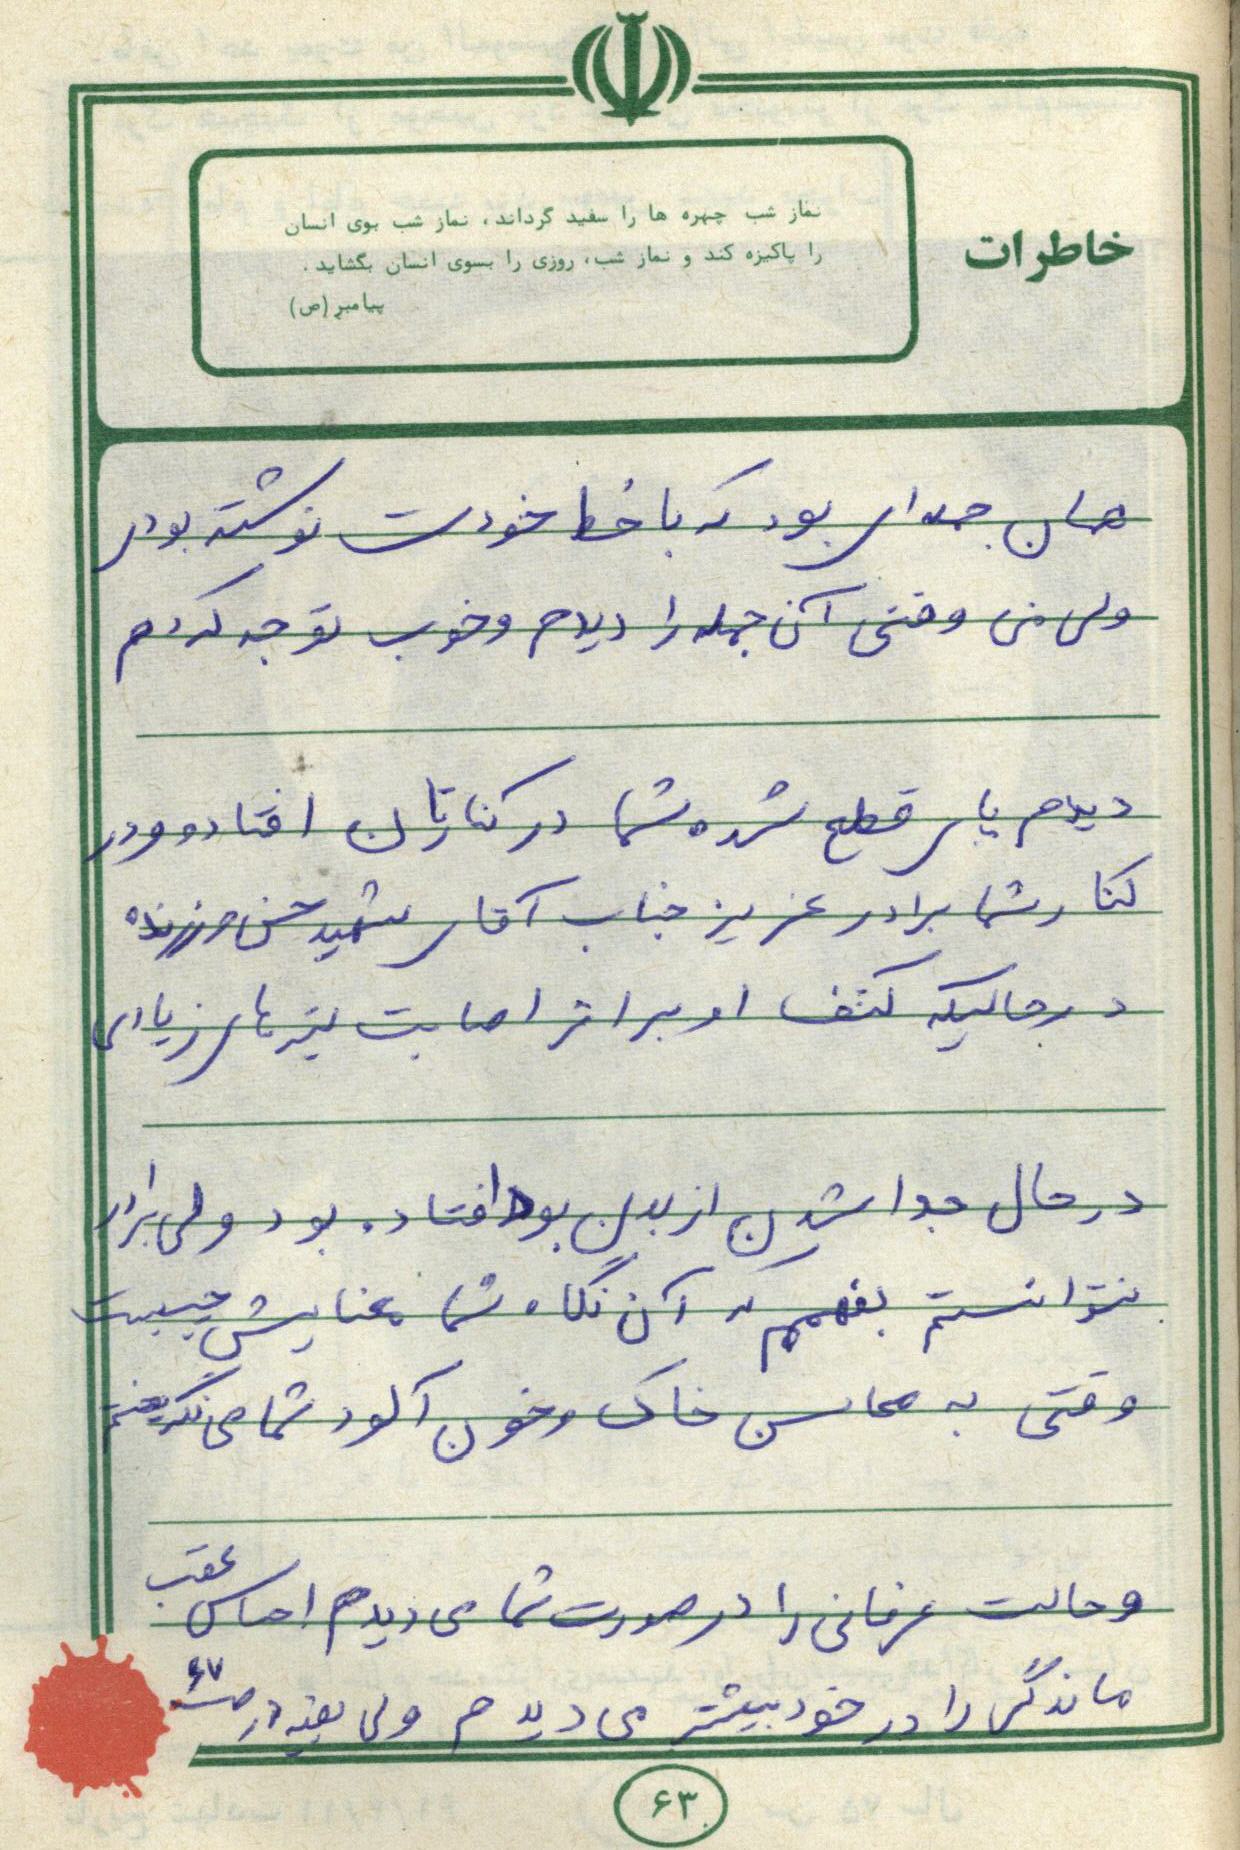 خاطرات
نماز شب چهره ها را سفید گرداند، نماز شب بوی انسان
را پاکیزه کند و نماز شب، روزی را بسوی انسان بگشاید.
پیامبر (ص)
همان جمله‌ای بود که با خط خودت نوشته بودی
ولی من وقتی آن جمله را دیدم وخوب توجه کردم
دیدم پای قطع شده شما در کنارتان افتاده ودر
کنار شما برادر عزیز جناب آقای شهید حسن
درحالیکه کتف او بر اثر اصابت تیرهای زیادی
در حال جدا شدن از بدن بود افتاده بود ولی برادر
نتوانستم بفهمم که آن نگاه شما معنایش چیست
وقتی به محاسن خاک وخون آلود شما می نگریستم
وحالت عرفانی را در صورت شما می دیدم احساس عقب
ماندگی را در خود بیشتر می دیدم ولی بقیه در ص ۶۷
۶۳